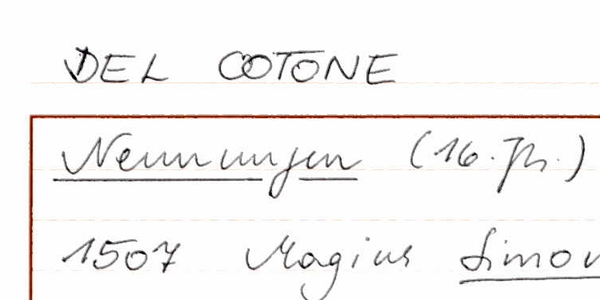 DEL COTONE
Nennungen (16. Jh.)
1507 Magius Simon